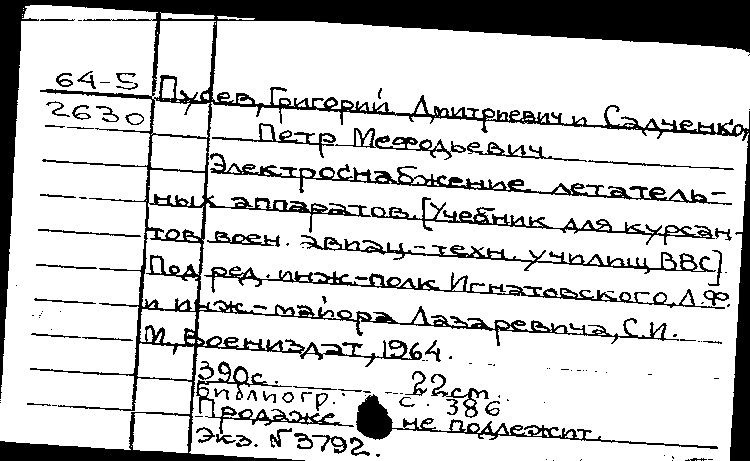 64-5
2630
Пусев, Григорий Дмитриевич и Садченко,
Петр Мефодьевич.
Электроснабжение летатель-
ных аппаратов. [Учебник для курсан-
тов воен. авиац.-техн. училищ ВВС].
Под ред. инж-полк Игнатовского, Л.Ф.
и инж-майора Лазаревича, С.И.
М., Воениздат, 1964.
390с. 22 cm.
Библиогр. с. 386
Продаже не подлежит.
Экз. № 3792.